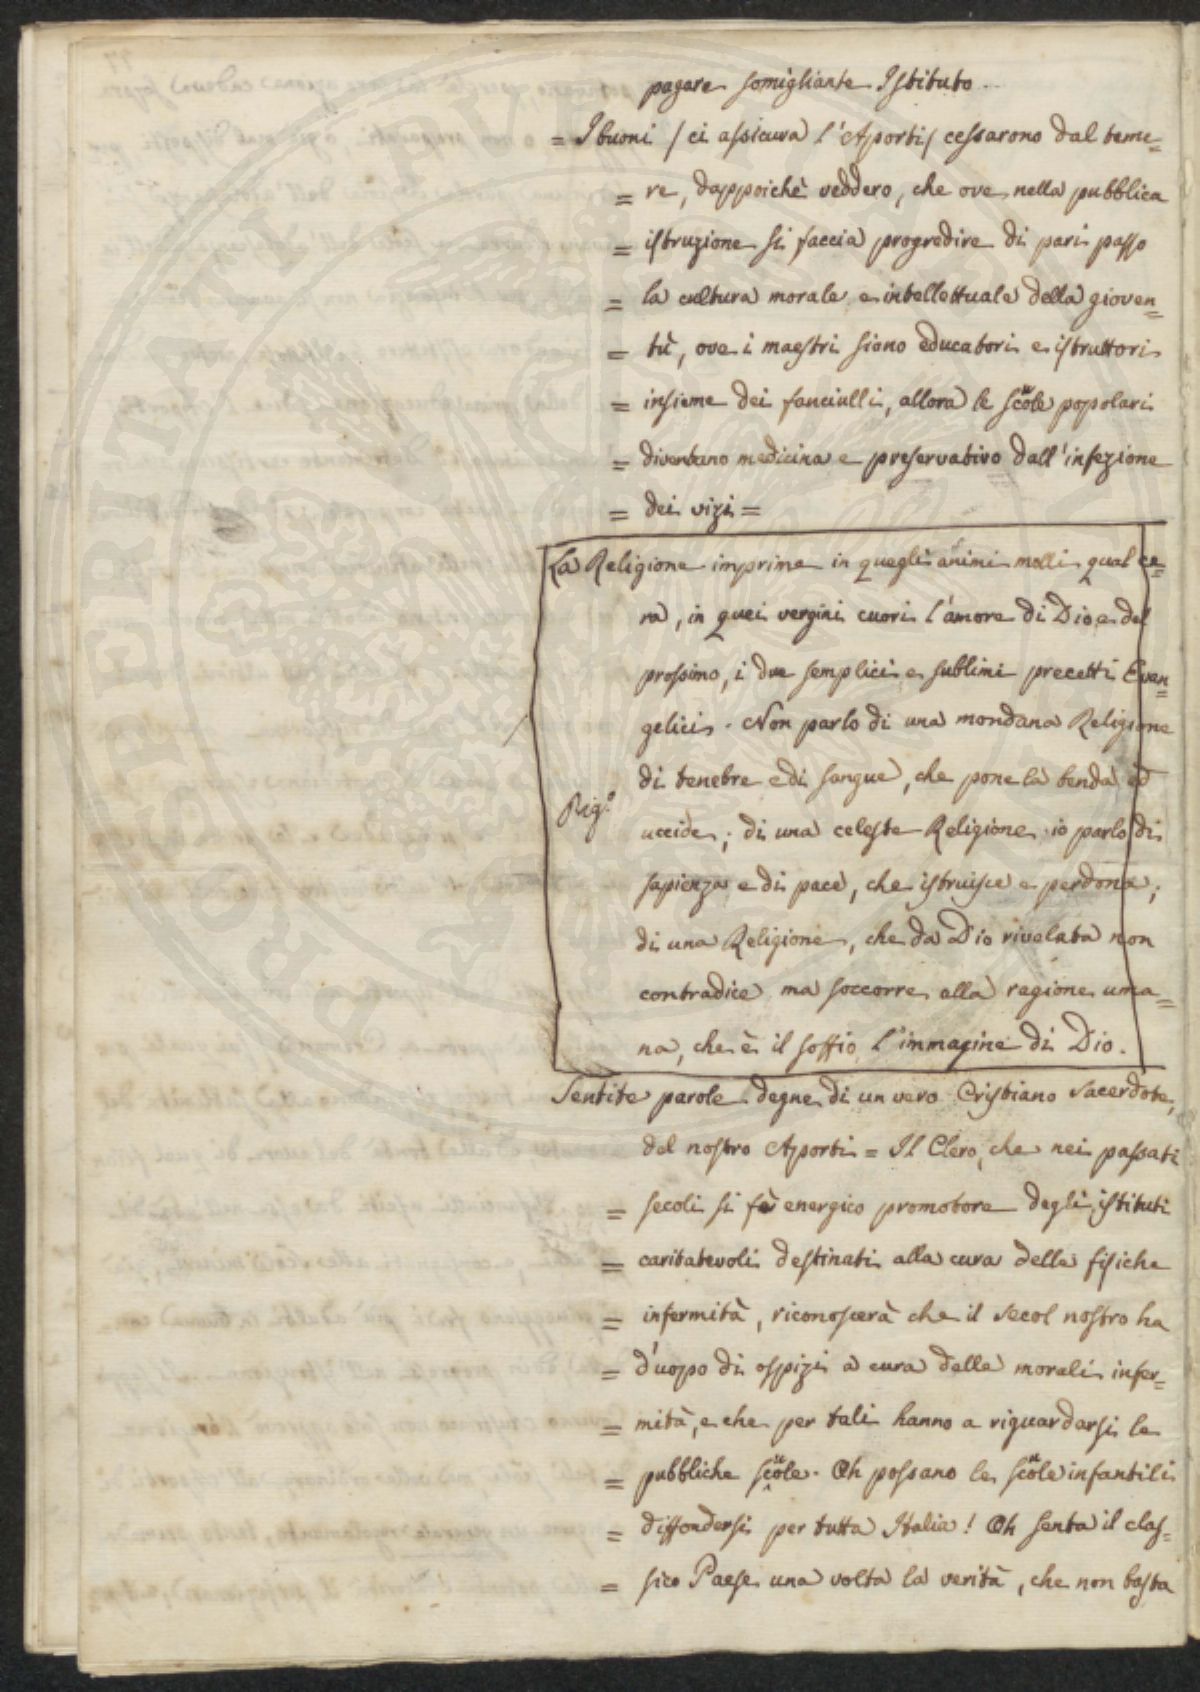 pagare somigliante Istituto
= I buoni / ci assicura l'Aporti / cessarono dal teme=
= re, dappoichè veddero, che ove nella pubblica
= istruzione si faccia progredire di pari passo
= la cultura morale e intellettuale della gioven=
= tù, ove i maestri siano educatori e istruttori
= insieme dei fanciulli, allora le scuole popolari
= diventano medicina e preservativo dall'infezione
= dei vizi =
La Religione imprime in quegli animi molli qual ce=
ra, in quei vergini cuori l'amore di Dio e del
prossimo, i due semplici e sublimi precetti Evan=
gelici. Non parlo di una mondana Religione
di tenebre e di sangue, che pone la benda ed
uccide; di una celeste Religione io parlo di
sapienza e di pace, che istruisce e perdona;
di una Religione, che da Dio rivelata non
contradice ma soccorre alla ragione uma=
na, che è il soffio l'immagine di Dio.
Sentite parole degne di un vero Cristiano Sacerdote,
del nostro Aporti = Il Clero, che nei passati
= secoli si fè energico promotore degli istituti
= caritatevoli destinati alla cura delle fisiche
= infermità, riconoscerà che il secol nostro ha
= d'uopo di ospizi a cura delle morali infer=
= mità, e che per tali hanno a riguardarsi le
= pubbliche scuole. Oh possano le scuole infantili
= diffondersi per tutta Italia! Oh senta il clas=
= sico Paese una volta la verità, che non basta